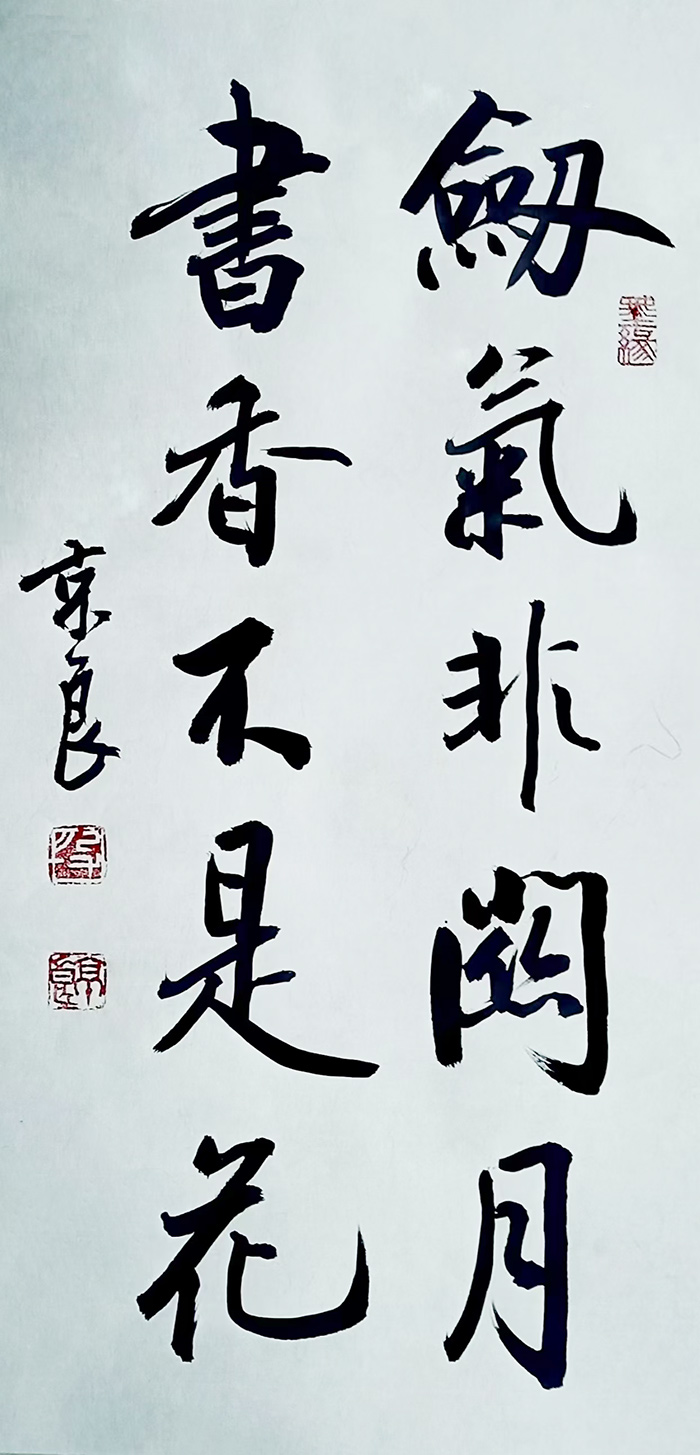 劔氣非關月
書香不是花
京良